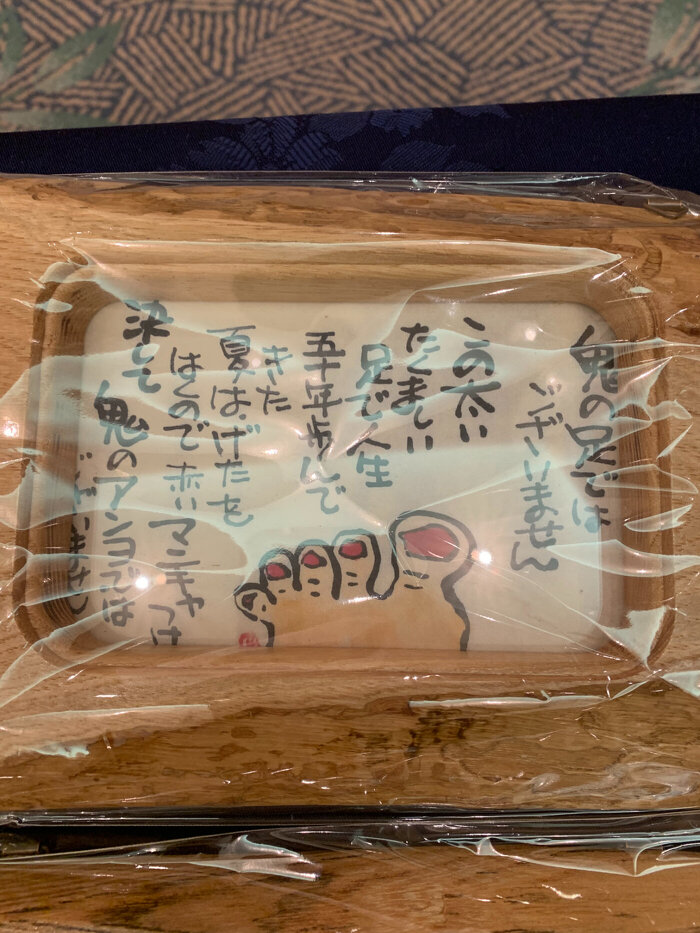 鬼の足では
ございません
この太い
たくましい
足で人生
五十年歩んで
きた
夏は、げたを
はくので赤い
マニキャ
つけ
決して鬼のアンヨでは
ございません